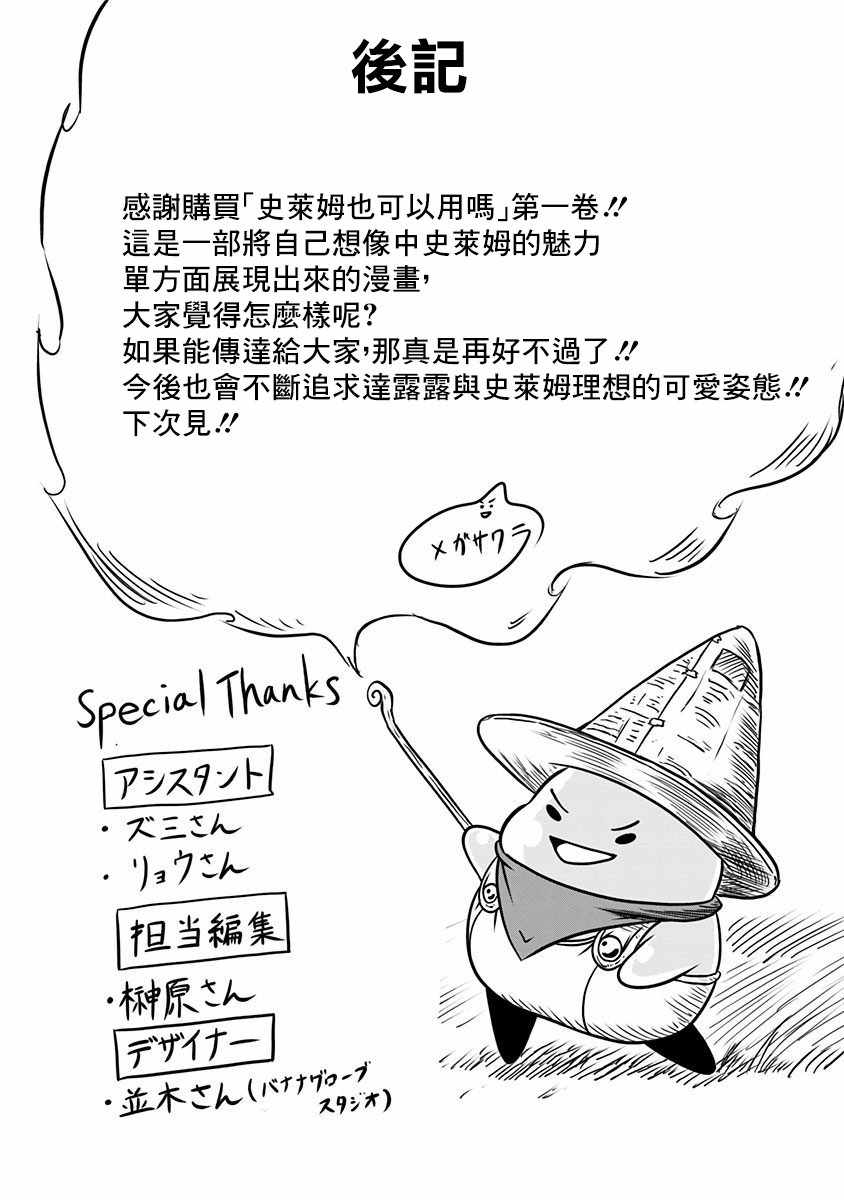 後記
感謝購買「史萊姆也可以用嗎」第一卷!!
這是一部將自己想像中史萊姆的魅力
單方面展現出來的漫畫，
大家覺得怎麼樣呢?
如果能傳達給大家，那真是再好不過了!!
今後也會不斷追求達露露與史萊姆理想的可愛姿態!!
下次見!!
メガサワラ
Special Thanks
アシスタント
・ズミさん
・リョウさん
担当編集
・榊原さん
デザイナー
・並木さん(バナナグローブ
スタジオ)